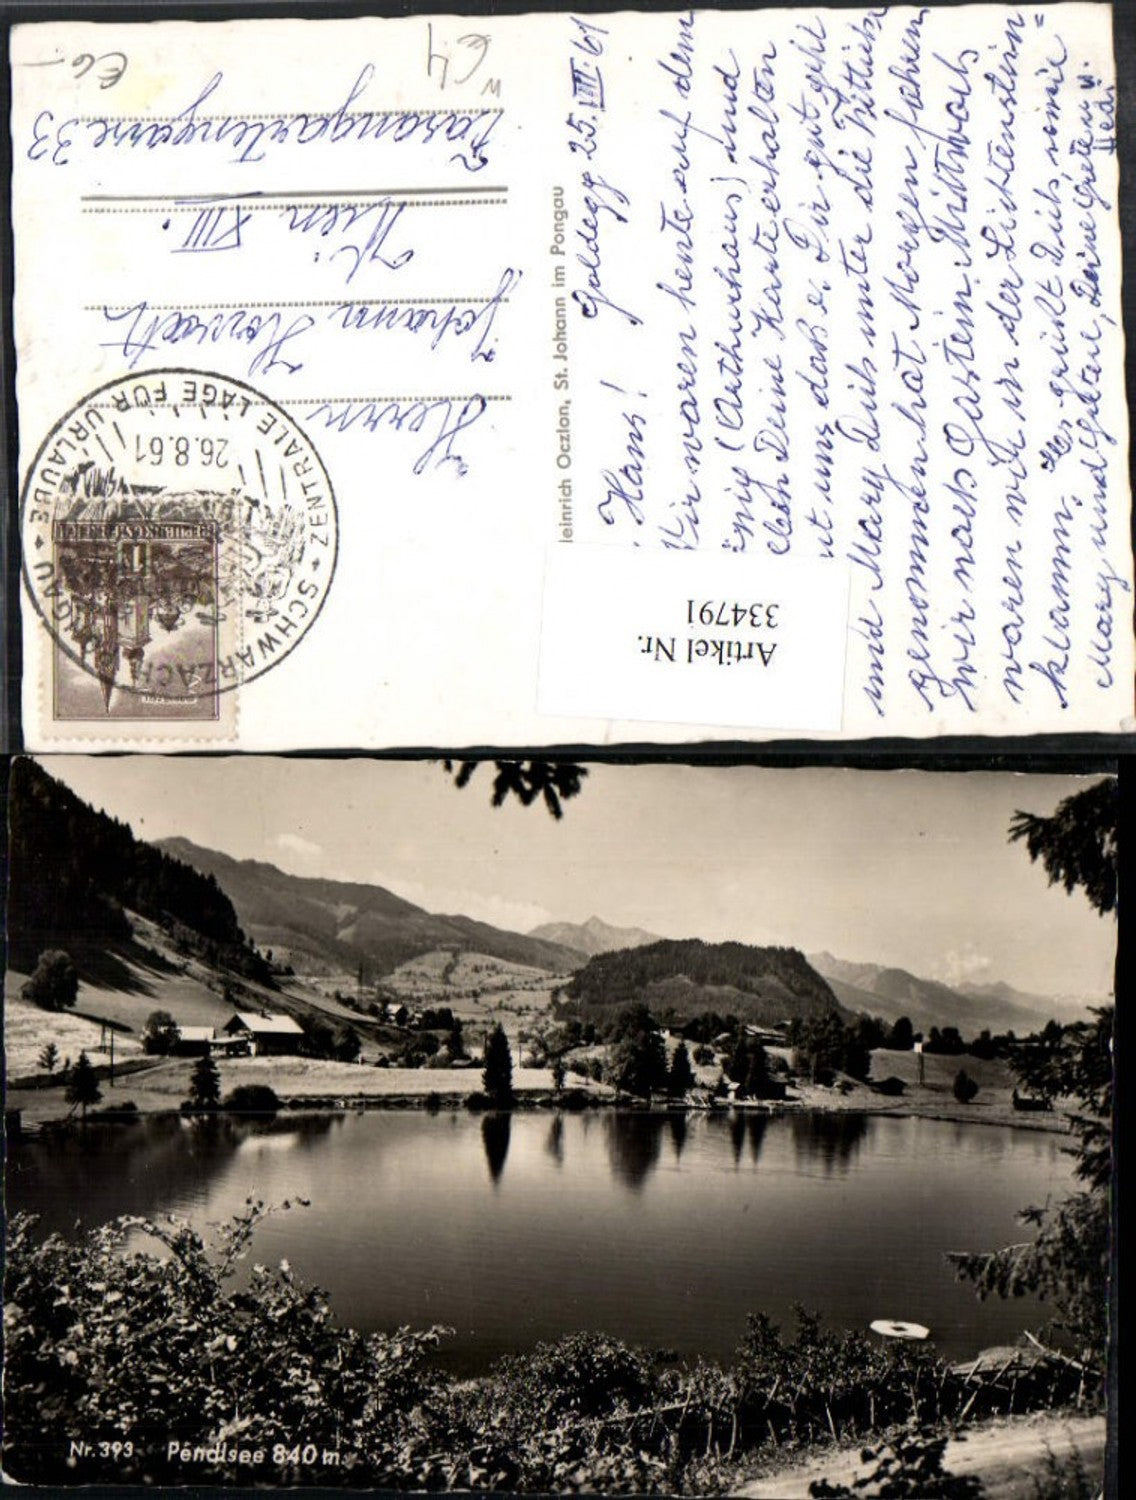 Goldegg 25. VIII. 61
Hans!
Wir waren heute auf dem
(Arthurhaus) und
Deine Karte erhalten
uns daß es Dir gut geht
und Mary Dich unter die Fittiche
genommen hat. Morgen fahren
wir nach Gastein. Mittwoch
waren wir in der Lichtenstein=
klamm. Es grüßt Dich, sowie
Mary und Deine Greten u.
Hedi
einrich Oczlon, St. Johann im Pongau
Herrn
Johann
Wien XIII.
Fasangartengasse 33
€6-
€4
ZENTRALE LAGE FÜR URLAUBE
SCHWARZACH PONGAU
26.8.61
REPUBLIK ÖSTERREICH
Artikel Nr.
334791
Nr. 393 Pendlsee 840 m